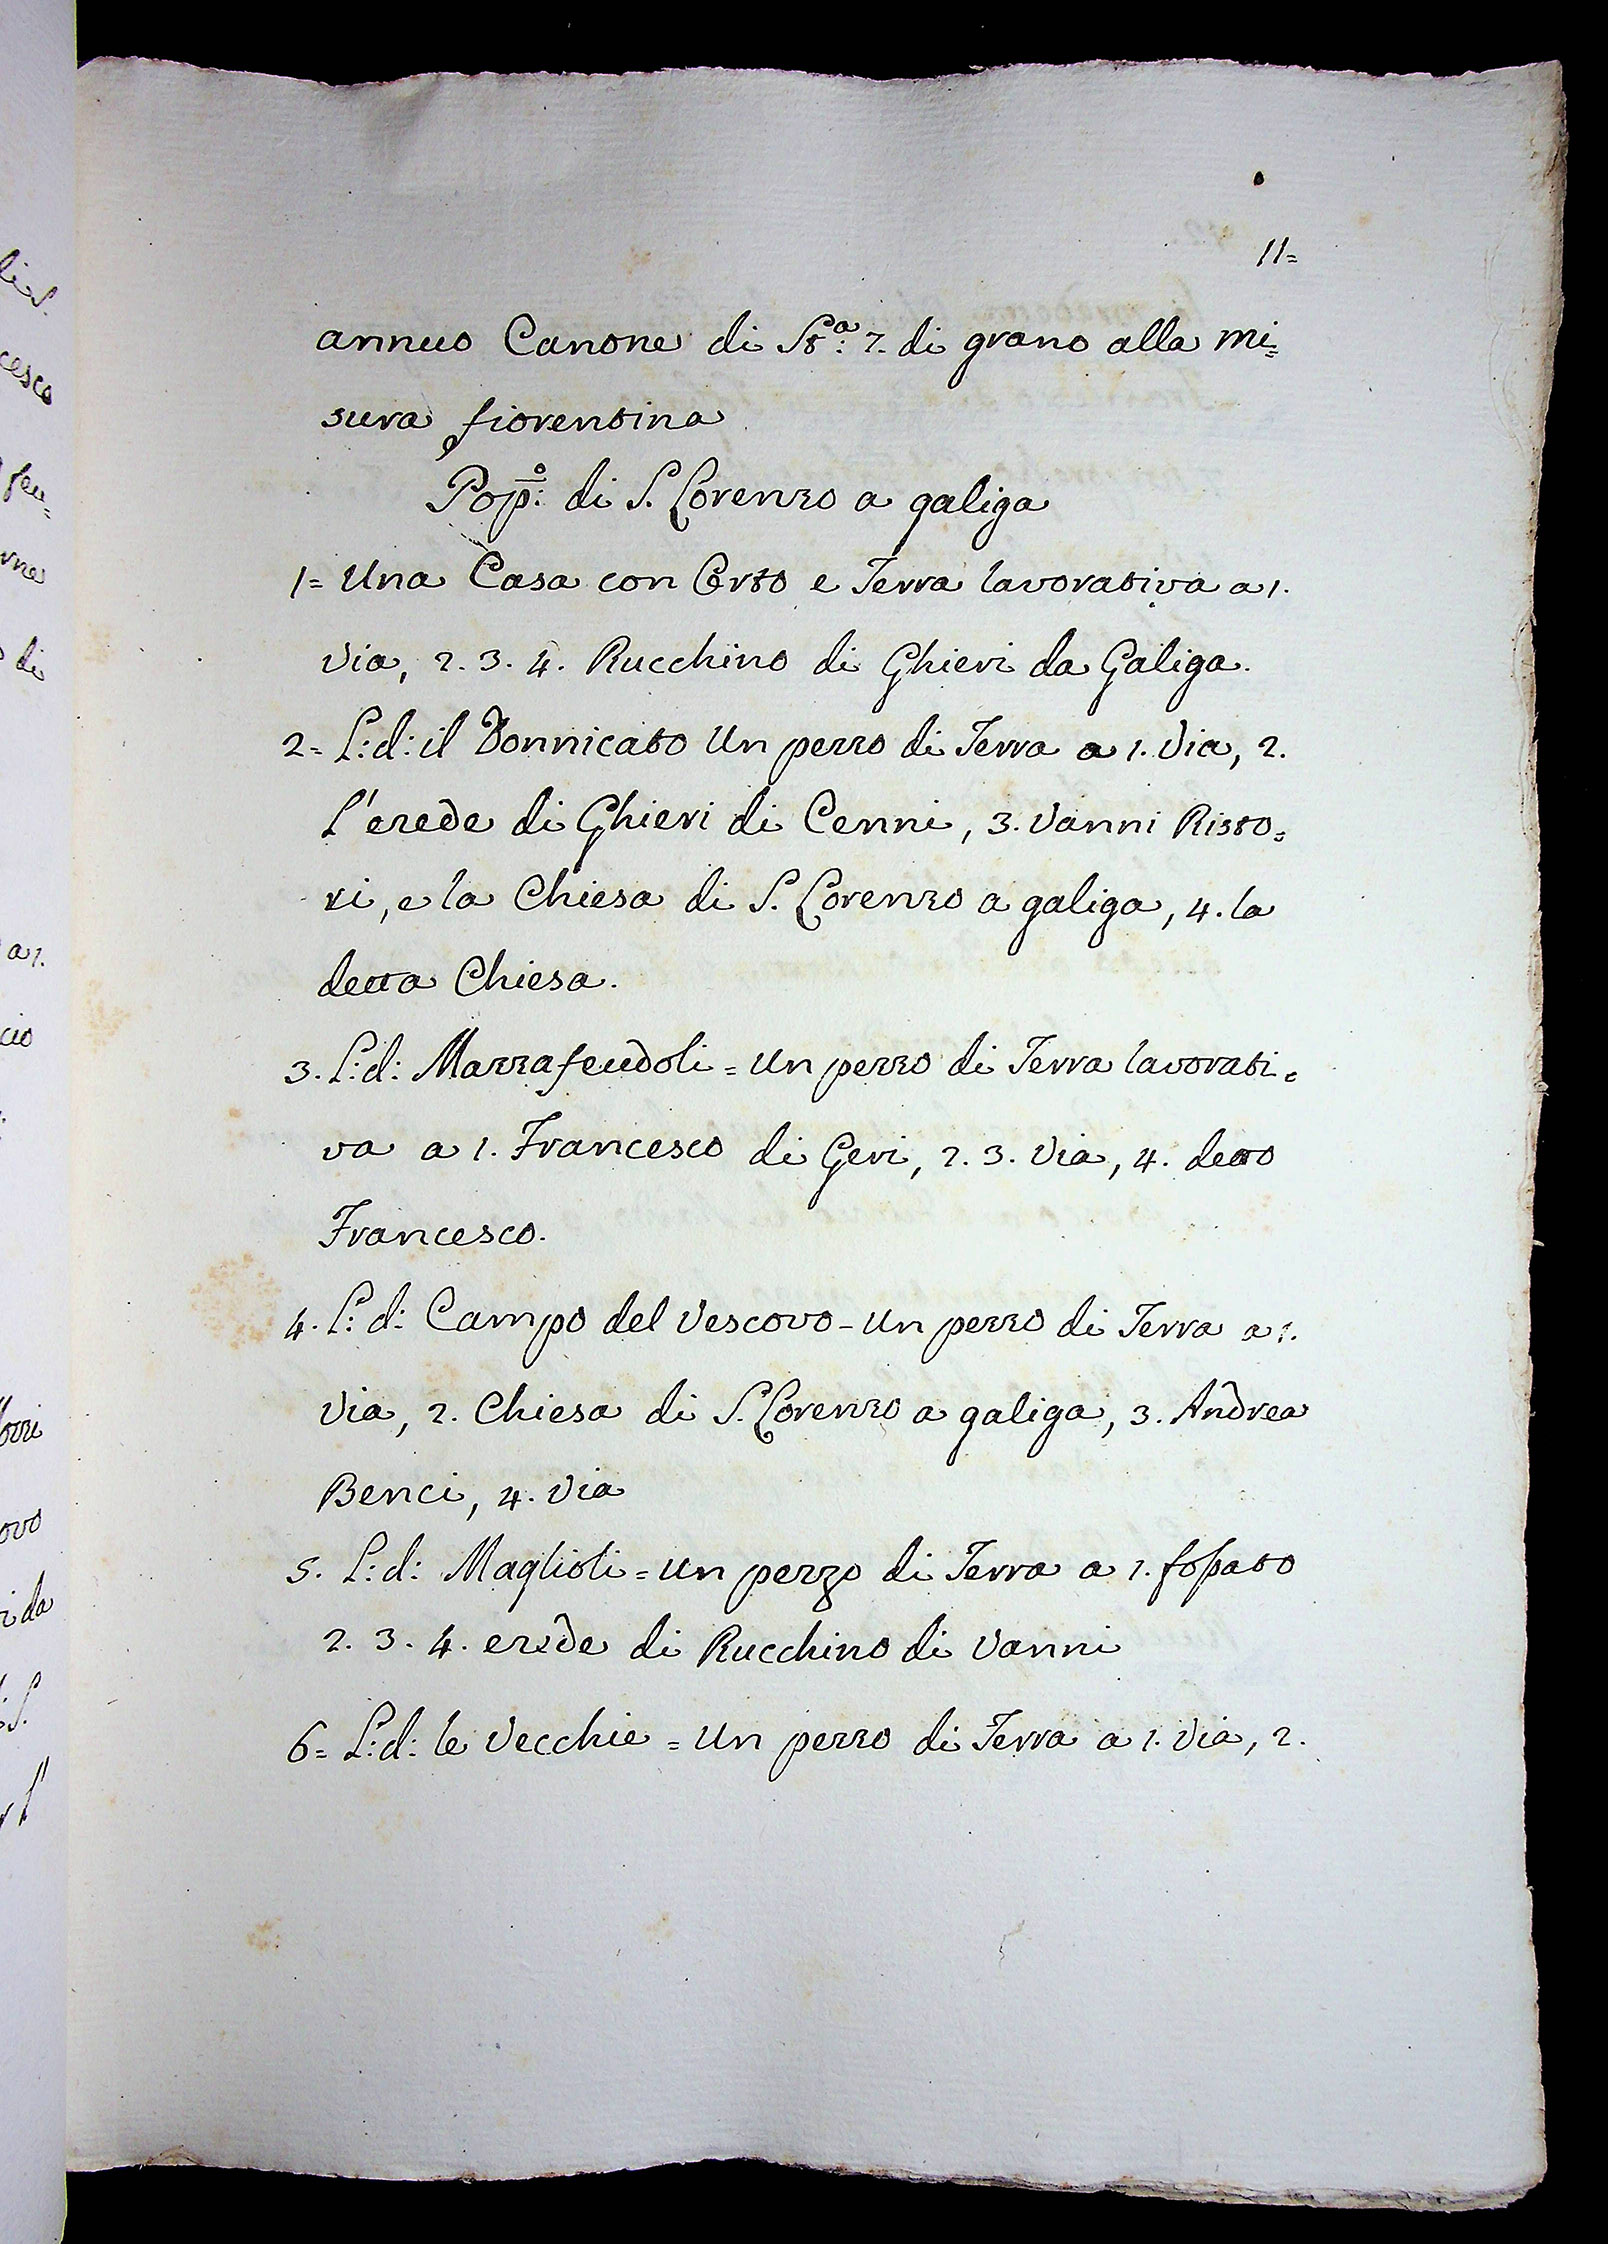 11=
annuo Canone di St.ª: 7. di grano alla mi=
sura fiorentina
Pop:º di S. Lorenzo a galiga
1= Una Casa con Orto e Terra lavorativa a 1.
via, 2. 3. 4. Rucchino di Ghieri da Galiga.
2= L: d: il Donnicato Un pezzo di Terra a 1. Via, 2.
L'erede di Ghieri di Cenni, 3. Vanni Risto=
ri, e la Chiesa di S. Lorenzo a galiga, 4. la
detta Chiesa.
3. L: d: Mazzafeudoli = Un pezzo di Terra lavorati=
va a 1. Francesco di Geri, 2. 3. Via, 4. detto
Francesco.
4. L: d: Campo del Vescovo - Un pezzo di Terra a 1.
Via, 2. Chiesa di S. Lorenzo a galiga, 3. Andrea
Benci, 4. Via
5. L: d: Maglioli = Un pezzo di Terra a 1. fossato
2. 3. 4. erede di Rucchino di Vanni
6= L: d: le Vecchie = Un pezzo di Terra a 1. Via, 2.